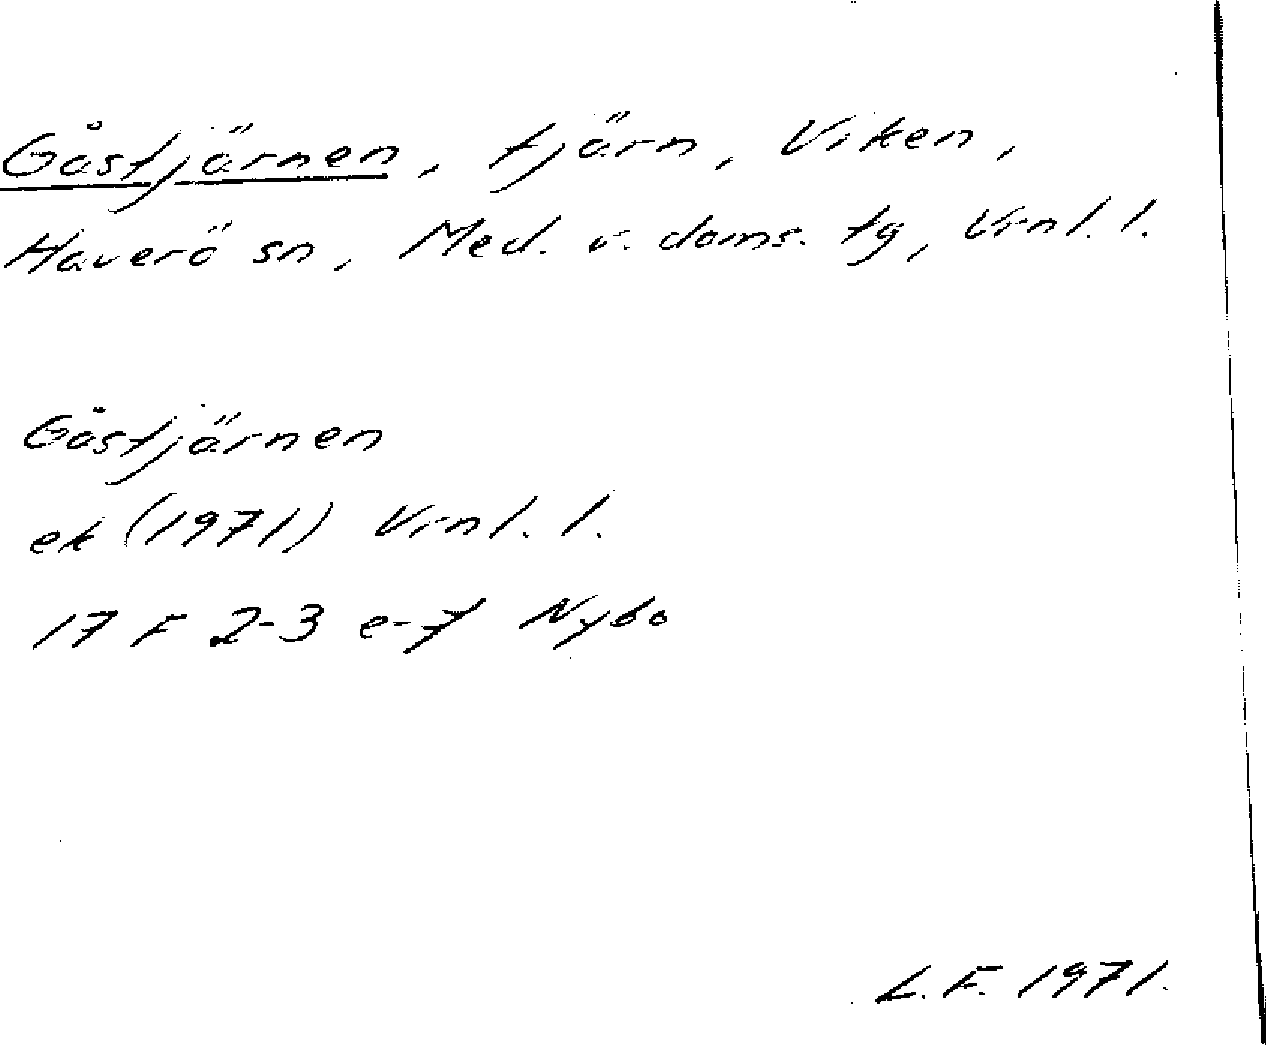 Gåstjärnen, tjärn, Viken,
Haverö sn, Med. v. doms. tg, Vrnl. l.
Gåstjärnen
ek (1971) Vrnl. l.
17 F 2-3 e-f Nybo
L.F. 1971.